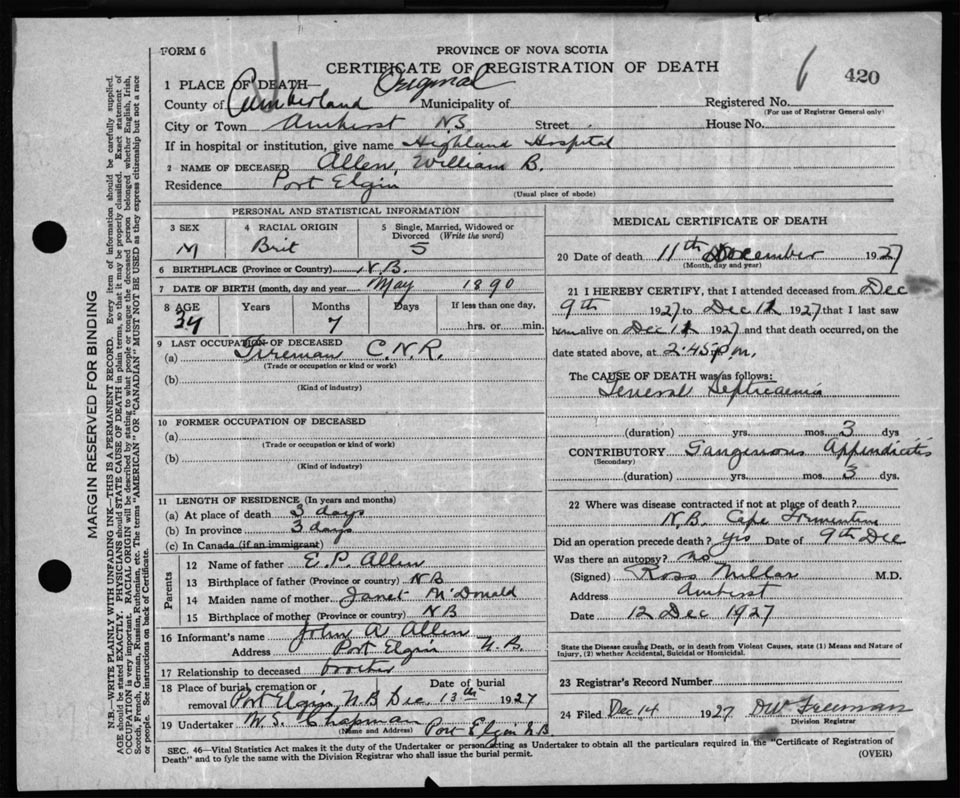 FORM 6
PROVINCE OF NOVA SCOTIA
CERTIFICATE OF REGISTRATION OF DEATH
6 420
1 PLACE OF DEATH— Original
County of Cumberland Municipality of Registered No.
(For use of Registrar General only)
City or Town Amherst NS Street House No.
If in hospital or institution, give name Highland Hospital
2 NAME OF DECEASED Allen, William B.
Residence Port Elgin
(Usual place of abode)
PERSONAL AND STATISTICAL INFORMATION
3 SEX 4 RACIAL ORIGIN 5 Single, Married, Widowed or
Divorced (Write the word)
M Brit S
6 BIRTHPLACE (Province or Country) N.B.
7 DATE OF BIRTH (month, day and year) May 1890
8 AGE Years Months Days If less than one day,
7 hrs. or min.
9 LAST OCCUPATION OF DECEASED
(a) Fireman C.N.R.
(Trade or occupation or kind or work)
(b)
(Kind of industry)
10 FORMER OCCUPATION OF DECEASED
(a)
(Trade or occupation or kind of work)
(b)
(Kind of industry)
11 LENGTH OF RESIDENCE (In years and months)
(a) At place of death 3 days
(b) In province 3 days
(c) In Canada (if an immigrant)
Parents
12 Name of father E. P. Allen
13 Birthplace of father (Province or country) NB
14 Maiden name of mother Janet McDonald
15 Birthplace of mother (Province or country) NB
16 Informant's name John A Allen
Address Port Elgin N.B.
17 Relationship to deceased brother
18 Place of burial, cremation or Date of burial
removal Port Elgin, N.B Dec. 13th 1927
19 Undertaker W. S. Chapman Port Elgin NB
(Name and Address)
MEDICAL CERTIFICATE OF DEATH
20 Date of death 11th December 1927
(Month, day and year)
21 I HEREBY CERTIFY, that I attended deceased from Dec
9th 1927 to Dec 11 1927 that I last saw
him alive on Dec 11 1927 and that death occurred, on
date stated above, at 2.45 p.m.
The CAUSE OF DEATH was as follows:
General Septicaemia
(duration) yrs. mos. 3 dys
CONTRIBUTORY Gangrenous Appendicitis
(Secondary)
(duration) yrs. mos. 3 dys.
22 Where was disease contracted if not at place of death?
N.B. Cape Tormentine
Did an operation precede death? yes Date of 9th Dec
Was there an autopsy? no
(Signed) Ross Millar M.D.
Address Amherst
Date 12 Dec 1927
State the Disease causing Death, or in death from Violent Causes, state (1) Means and Nature of
Injury, (2) whether Accidental, Suicidal or Homicidal.
23 Registrar's Record Number
24 Filed Dec 14 1927 DW Freeman
Division Registrar
SEC. 46—Vital Statistics Act makes it the duty of the Undertaker or person acting as Undertaker to obtain all the particulars required in the "Certificate of Registration of
Death" and to fyle the same with the Division Registrar who shall issue the burial permit. (OVER)
MARGIN RESERVED FOR BINDING
N.B.—WRITE PLAINLY WITH UNFADING INK—THIS IS A PERMANENT RECORD. Every item of information should be carefully supplied.
AGE should be stated EXACTLY. PHYSICIANS should STATE CAUSE OF DEATH in plain terms, so that it may be properly classified. Exact statement of
OCCUPATION is very important. RACIAL ORIGIN will be described by stating to what people or tongue the deceased person belonged whether English, Irish,
Scotch, French, German, Russian, Ruthenian, etc. The terms "AMERICAN" OR "CANADIAN" MUST NOT BE USED as they express citizenship but not a race
or people. See instructions on back of Certificate.